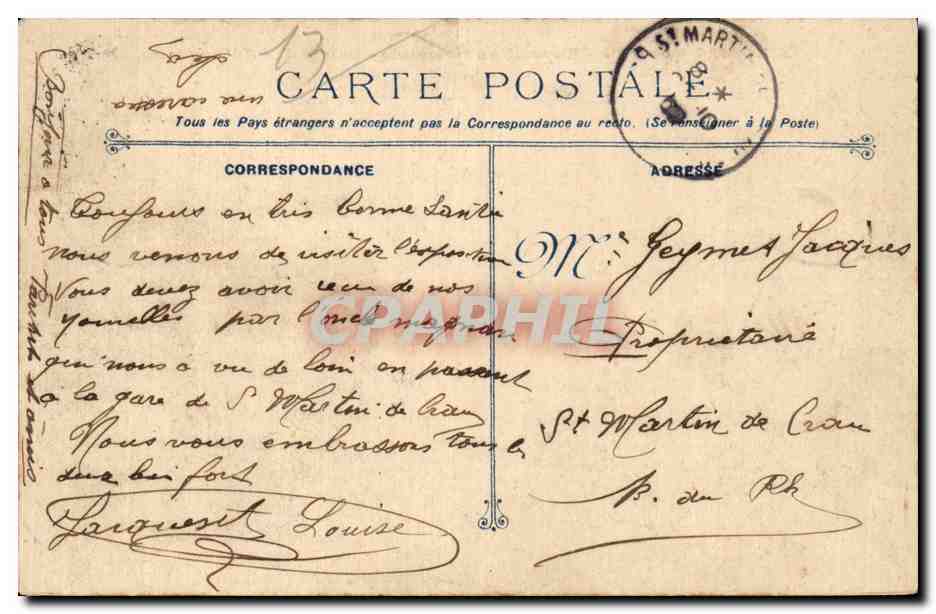 13
CARTE POSTALE
Tous les Pays étrangers n'acceptent pas la Correspondance au recto. (Se renseigner à la Poste)
CORRESPONDANCE
Toujours en très bonne santé
nous venons de visiter l'exposition
Vous devez avoir reçu de nos
nouvelles par l'oncle magnan
qui nous a vu de loin en passant
à la gare de St Martin de Crau
Nous vous embrassons tous les
deux bien fort
Jacques et Louise
Bonjour à tous Parents et amis
une caresse
ADRESSE
St MARTIN
8 *
10
Mr Geymet Jacques
Propriétaire
St Martin de Crau
B. du Rh
CPAPHIL